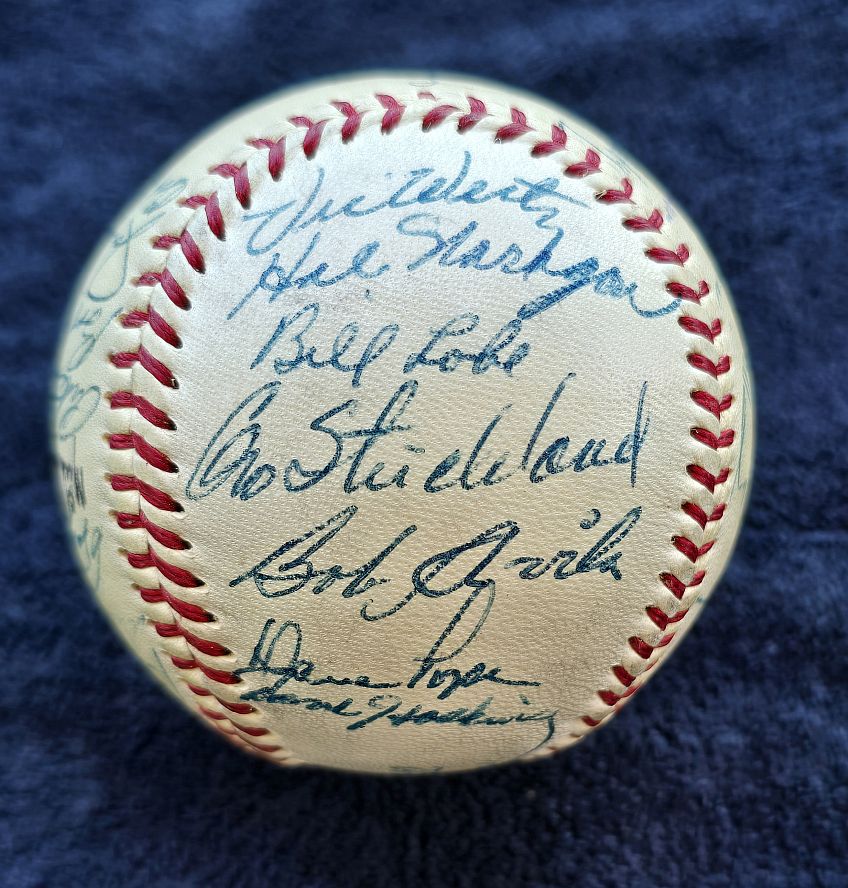 Vic Wertz
Hal Naragon
Bill Lobe
Geo Strickland
Bob Avila
Dave Pope